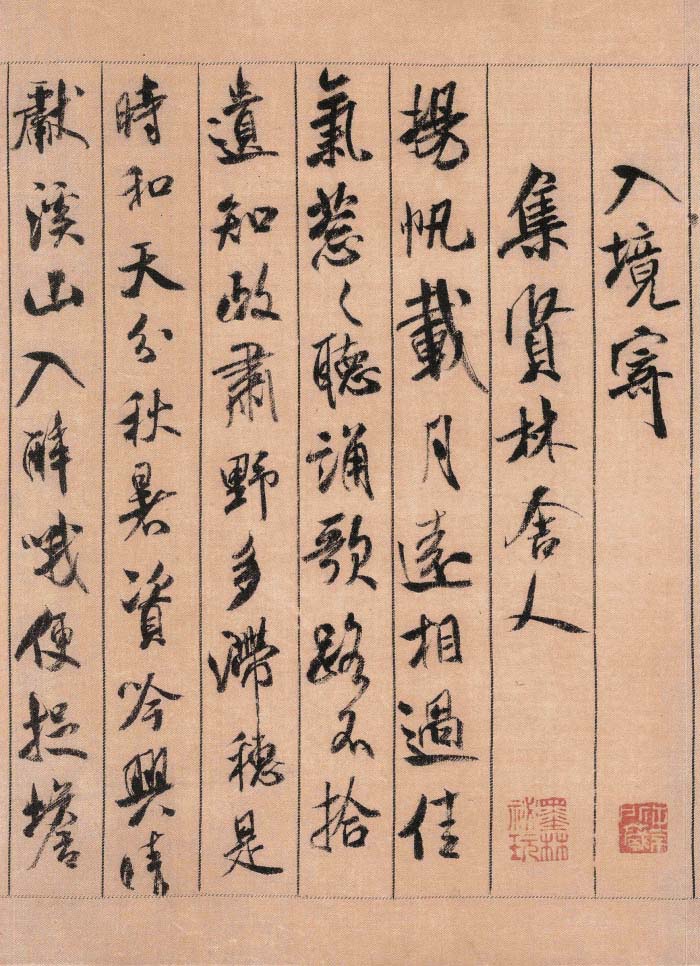 入境寄
集賢林舍人
揚帆載月遠相過佳
氣葱〻聽誦歌路不拾
遺知政肅野多滯穗是
時和天分秋暑資吟興晴
獻溪山入醉哦便捉蟾
墨林祕玩